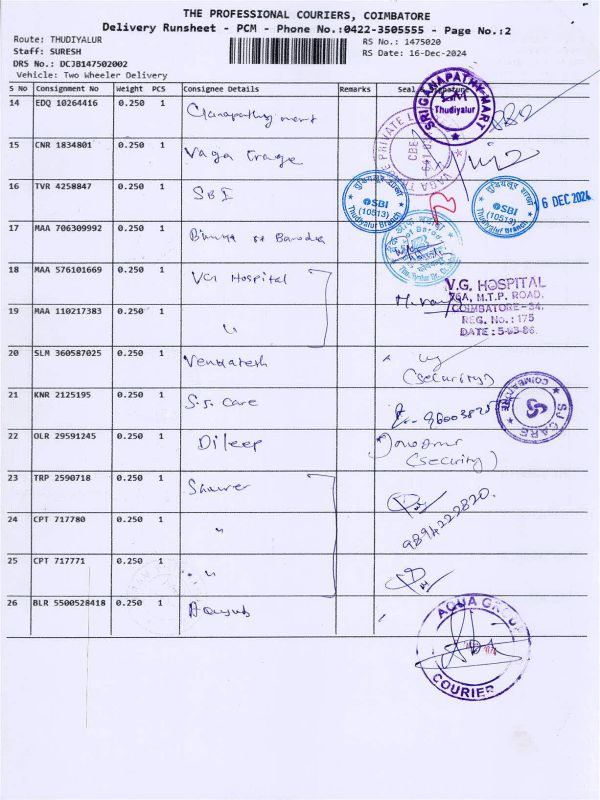 THE PROFESSIONAL COURIERS, COIMBATORE
Delivery Runsheet - PCM - Phone No.:0422-3505555 - Page No.:2
Route: THUDIYALUR
RS No.: 1475020
Staff: SURESH
RS Date: 16-Dec-2024
DRS No.: DCJB147502002
Vehicle: Two Wheeler Delivery
S No Consignment No Weight PCS Consignee Details Remarks Seal & Signature
14 EDQ 10264416 0.250 1 Ganapathy mart
SRI GANAPATHY MART
Thudiyalur
15 CNR 1834801 0.250 1 Vaga trade
PRIVATE
CBE
16 TVR 4258847 0.250 1 SBI
SBI
(10513)
Thudiyalur Branch
SBI
(10513)
Thudiyalur Branch
6 DEC 2024
17 MAA 706309992 0.250 1 of Baroda
18 MAA 576101669 0.250 1 VG Hospital
V.G. HOSPITAL
76A, M.T.P. ROAD,
COIMBATORE-34.
REG. No.: 175
DATE: 5-03-86.
19 MAA 110217383 0.250 1 "
20 SLM 360587025 0.250 1 Venkatesh
(Security)
21 KNR 2125195 0.250 1 S.J. Care
SJ CARE
COIMBATORE
22 OLR 29591245 0.250 1 Dileep
(Security)
23 TRP 2590718 0.250 1
24 CPT 717780 0.250 1 "
9894222820.
25 CPT 717771 0.250 1 "
26 BLR 5500528418 0.250 1
AQUA GROUP
COURIER